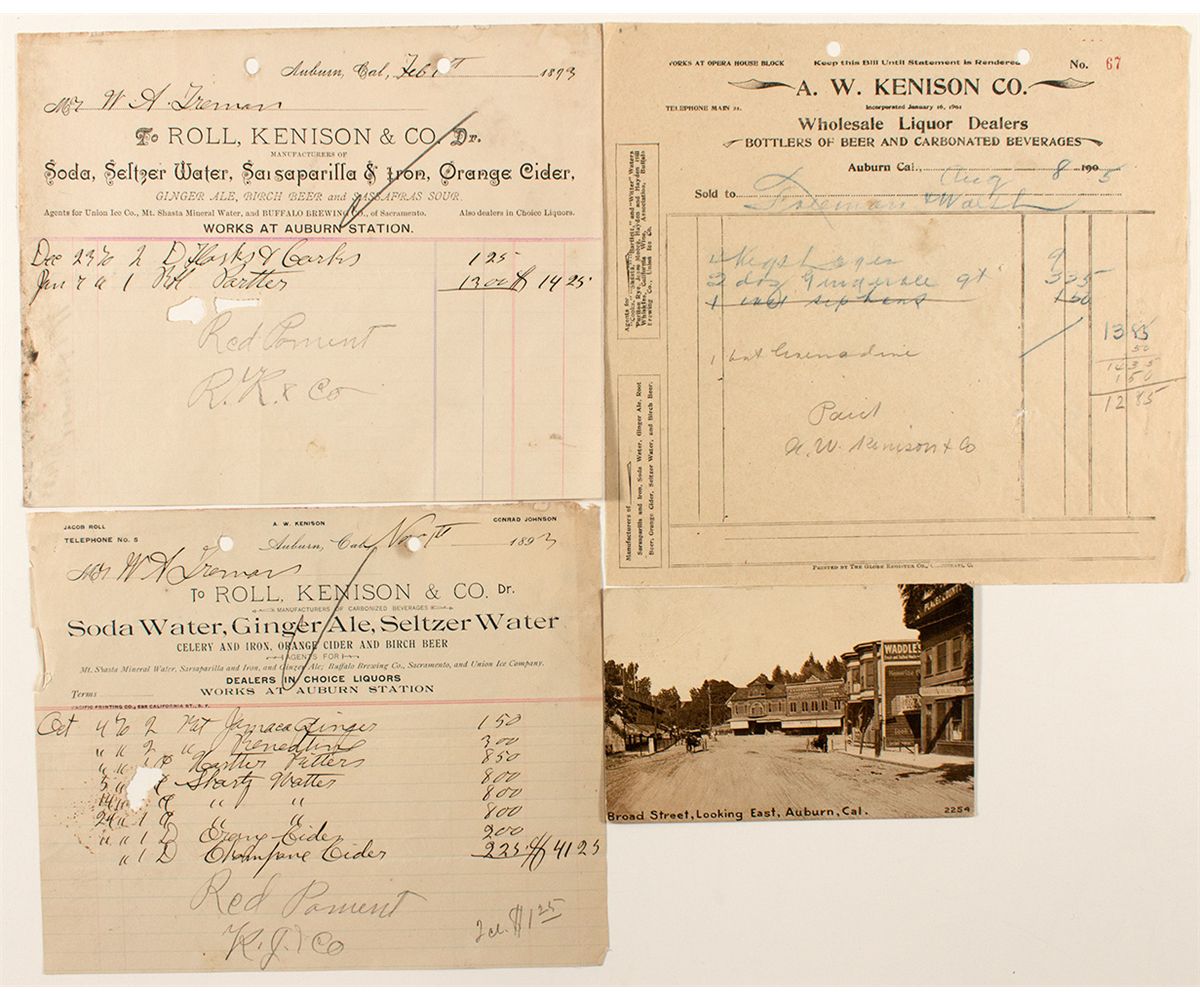 Auburn, Cal, Feb 1st 1893
Mr W A Freman
To ROLL, KENISON & CO. Dr.
MANUFACTURERS OF
Soda, Seltzer Water, Sarsaparilla & Iron, Orange Cider,
GINGER ALE, BIRCH BEER and SASSAFRAS SOUR.
Agents for Union Ice Co., Mt. Shasta Mineral Water, and BUFFALO BREWING CO., of Sacramento. Also dealers in Choice Liquors.
WORKS AT AUBURN STATION.
Dec 23 2 D Flasks & Corks 1 25
Jan 7 1 13 00 $ 14 25
Red Poment
R. K. & Co
WORKS AT OPERA HOUSE BLOCK Keep this Bill Until Statement is Rendered No. 67
A. W. KENISON CO.
TELEPHONE MAIN 21. Incorporated January 16, 1904
Wholesale Liquor Dealers
BOTTLERS OF BEER AND CARBONATED BEVERAGES
Auburn Cal., Aug 8 1905
Sold to Foreman & Walsh
1 Kegs Lager 9
2 doz Gingerale qt 3 35
1 syphons 1 50
13 85
50
1 Grenadine
14 35
1 50
12 85
Paid
A. W. Kenison & Co
Manufacturers of
Sarsaparilla and Iron, Soda Water, Ginger Ale, Root
Beer, Orange Cider, Seltzer Water, and Birch Beer.
PRINTED BY THE GLOBE REGISTER CO., CINCINNATI, O.
JACOB ROLL A. W. KENISON CONRAD JOHNSON
TELEPHONE No. 5
Auburn, Cal, Nov 1st 1893
Mr W A Freman
To ROLL, KENISON & CO. Dr.
MANUFACTURERS OF CARBONIZED BEVERAGES
Soda Water, Ginger Ale, Seltzer Water
CELERY AND IRON, ORANGE CIDER AND BIRCH BEER
AGENTS FOR
Mt. Shasta Mineral Water, Sarsaparilla and Iron, and Ginger Ale; Buffalo Brewing Co., Sacramento, and Union Ice Company.
DEALERS IN CHOICE LIQUORS
Terms WORKS AT AUBURN STATION
PACIFIC PRINTING CO., 538 CALIFORNIA ST., S. F.
Oct 4 2 Jamaca Ginger 1 50
" " 2 " Benedtine 3 00
" " 1 Bitters 8 50
5 " Shasty Watter 8 00
14 " " " 8 00
24 " 1 " " 8 00
" " 1 D Orang Cider 2 00
" 1 D Champane Cider 2 25 $ 41 25
Red Poment
K. J. & Co
$1 25
WADDLE'S
Broad Street, Looking East, Auburn, Cal. 2254